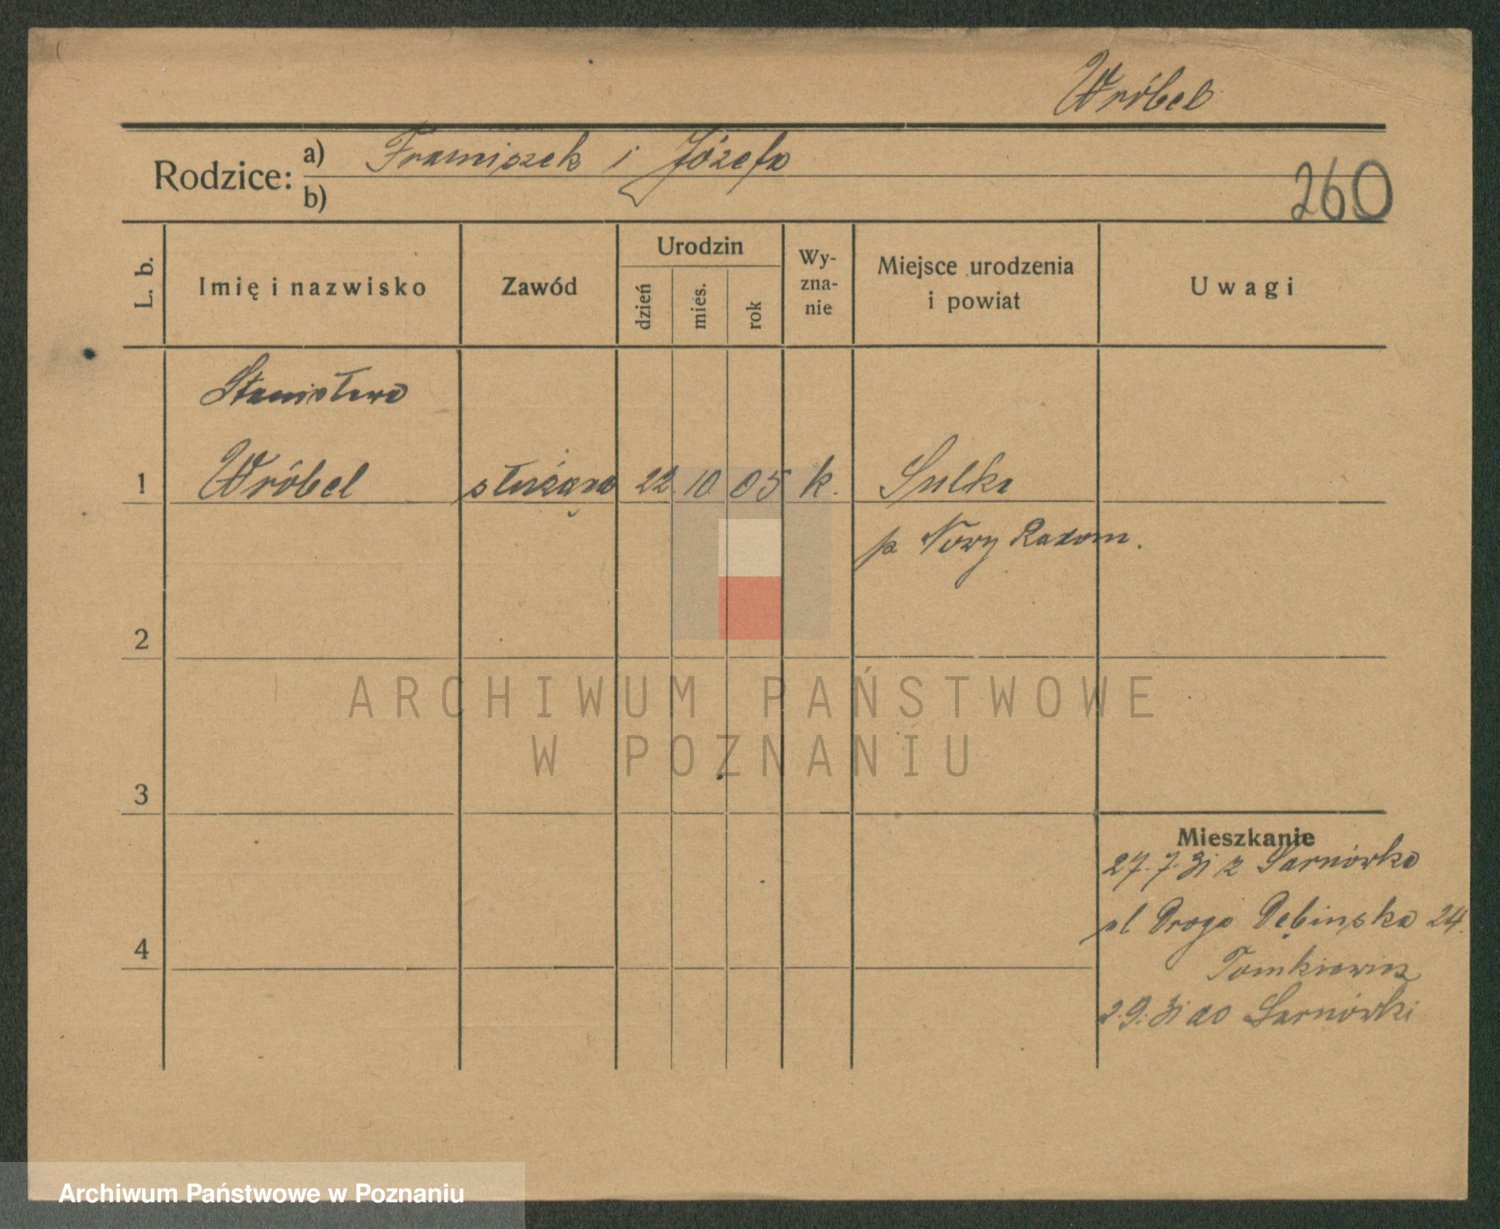 Wróbel
Rodzice: a) Franciszek i Józefa
b)
260
L. b.
Imię i nazwisko
Zawód
Urodzin
dzień
mies.
rok
Wy-
zna-
nie
Miejsce urodzenia
i powiat
Uwagi
Stanisława
1 Wróbel służąca 22 10 05 k.
p Nowy Radom.
2
3
4
Mieszkanie
27.7.31 z Sarnówka
ul Droga Dębińska 24.
Tomkiewicz
2.9.31 do Sarnówki
ARCHIWUM PAŃSTWOWE
W POZNANIU
Archiwum Państwowe w Poznaniu